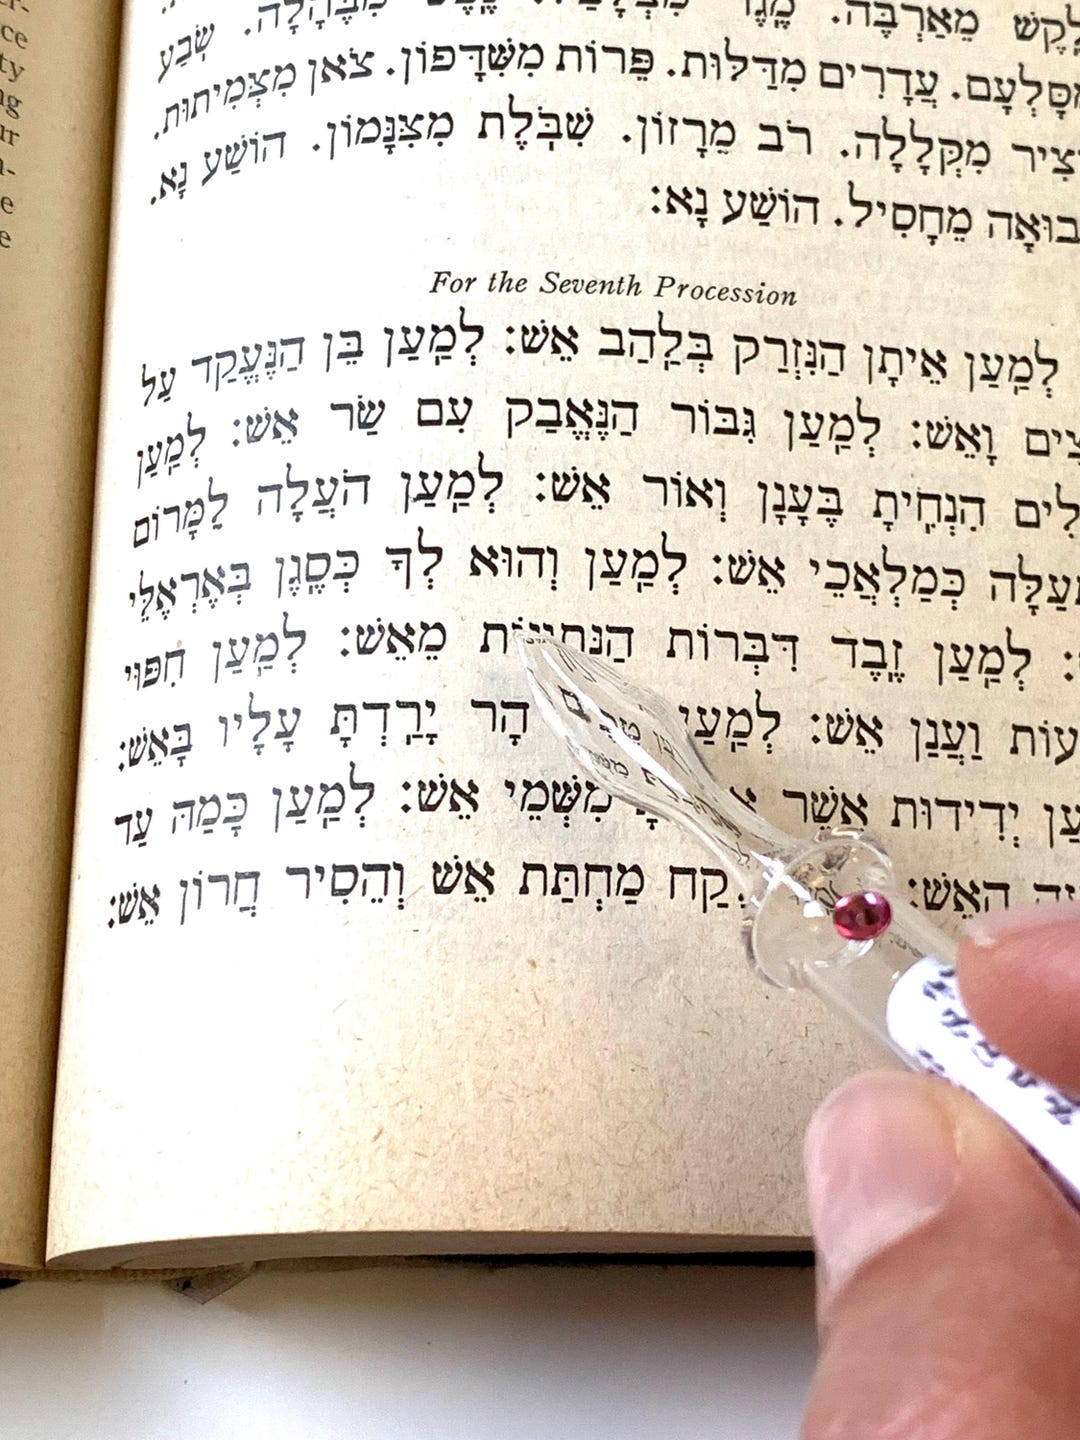 לֶקֶשׁ מֵאַרְבֶּה. מִבֶּהָלָה. שֹׂבַע
מִסָּלְעָם. עֲדָרִים מִדַּלּוּת. פֵּרוֹת מִשִּׁדָּפוֹן. צֹאן מִצְּמִיתוּת.
צִיר מִקְּלָלָה. רֹב מֵרָזוֹן. שִׁבֹּלֶת מִצִּנָּמוֹן. הוֹשַׁע נָא.
בוּאָה מֵחָסִיל. הוֹשַׁע נָא:
For the Seventh Procession
לְמַעַן אֵיתָן הַנִּזְרַק בְּלַהַב אֵשׁ: לְמַעַן בֵּן הַנֶּעֱקַד עַל
צִים וָאֵשׁ: לְמַעַן גִּבּוֹר הַנֶּאֱבַק עִם שַׂר אֵשׁ: לְמַעַן
לִים הִנְחִיתָ בֶּעָנָן וְאוֹר אֵשׁ: לְמַעַן הֹעֲלָה לַמָּרוֹם
עַלָּה כְּמַלְאֲכֵי אֵשׁ: לְמַעַן וְהוּא לְךָ כְּסֶגֶן בְּאֶרְאֶלֵּי
לְמַעַן זֶבֶד דִּבְּרוֹת מֵאֵשׁ: לְמַעַן חִפּוּי
עוֹת וַעֲנַן אֵשׁ: הַר יָרַדְתָּ עָלָיו בָּאֵשׁ:
עַן יְדִידוּת אֲשֶׁר מִשְּׁמֵי אֵשׁ: לְמַעַן כָּמַהּ עַד
הָאֵשׁ: קַח מַחְתַּת אֵשׁ וְהֵסִיר חֲרוֹן אֵשׁ: